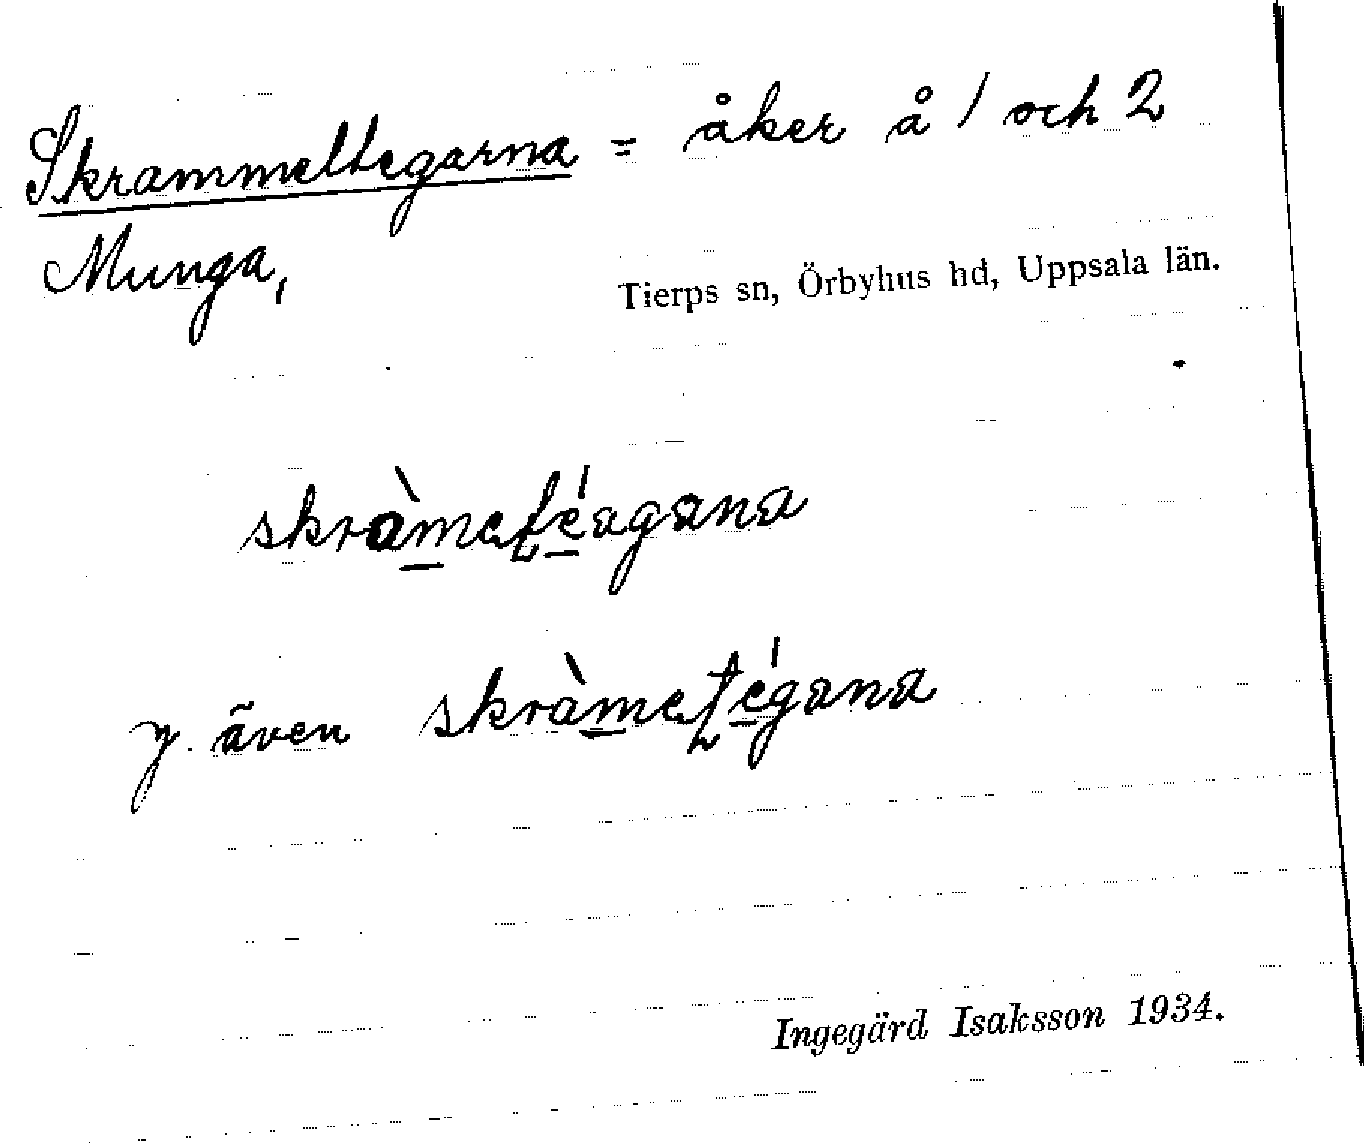 Skrammeltegarna = åker å 1 och 2
Munga,
Tierps sn, Örbyhus hd, Uppsala län.
y. även
Ingegärd Isaksson 1934.